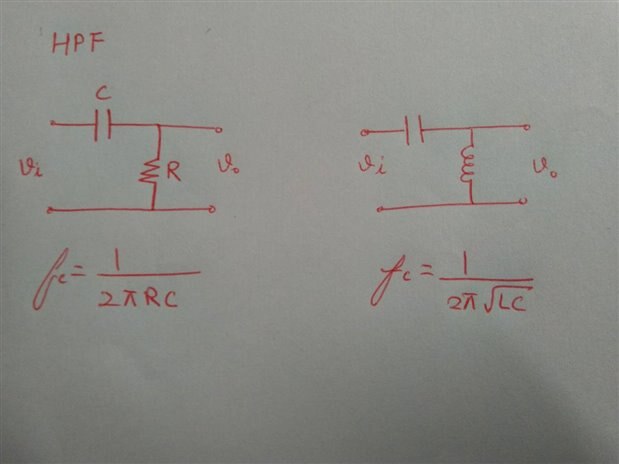 HPF
C
υi R υo
υi υo
fc = 1 / 2πRC
fc = 1 / 2π√LC